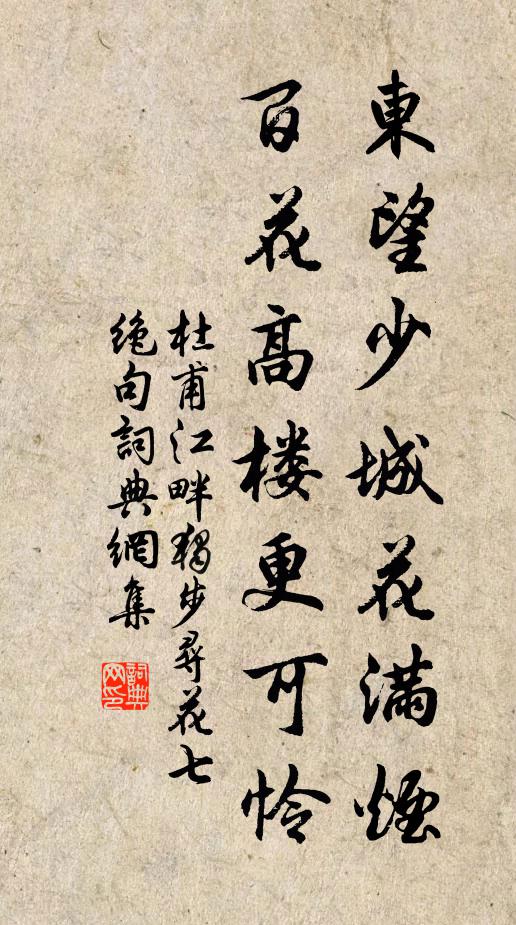 東望少城花滿煙
百花高楼更可怜
杜甫江畔獨步尋花七
絶句詞典網集
詞典
网印